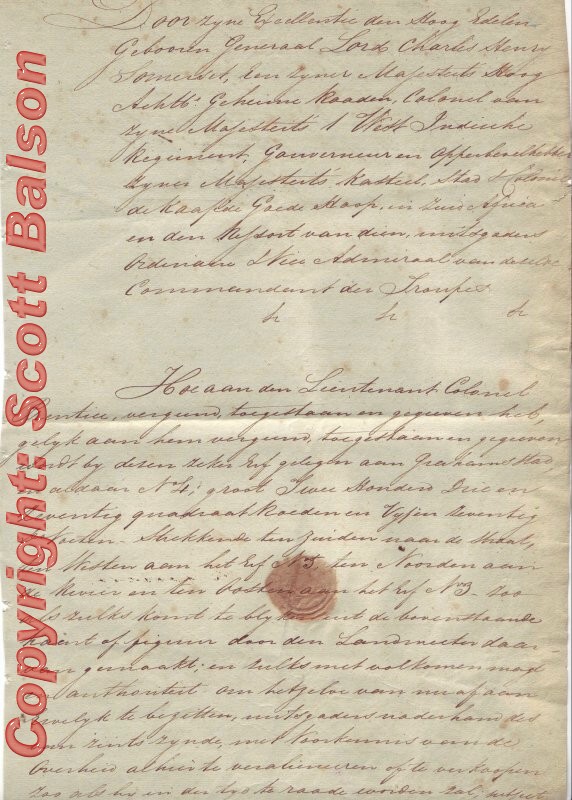 Door Zyne Excellentie den Hoog Edelen
Gebooren Generaal Lord Charles Henry
Somerset, Een Zyner Majesteits Hoog
Achtb. Geheime Raaden, Colonel van
Zyne Majesteits 1 West Indische
Regiment, Gouverneur en Opperbevelhebber
Zyner Majesteits Kasteel, Stad &
de Kaap de Goede Hoop, in Zuid Africa
en den Ressort van dien, mitsgaders
Ordinair & Vice Admiraal van dezelve
Commandant der Troupes
Hoe aan den Lieutenant Colonel
vergund, toegestaan en gegeven heb,
gelyk aan hem vergund, toegestaan en gegeven
wordt by dezen zeker Erf gelegen aan Grahamstad
aldaar No 4, groot Twee Honderd Drie en
Zeventig quadraat Roeden en Vyf en Zeventig
Voeten. Strekkende ten Zuiden naar de Straat,
ten Westen aan het Erf No 5 ten Noorden aan
de Revier en ten Oosten aan het Erf No 3 Zoo
als zulks komt te blyken uit de bovenstaande
Kaart of figuur door den Landmeeter daar
van gemaakt; en zulks met volkomen magt
en authoriteit om hetzelve van nu af aan
eeuwelyk te bezitten, mitsgaders naderhand des
zins zynde, met Voorkennis van de
Overheid alhier te veralieneeren of te verkoopen
Zoo als hy in der tyd te raade worden zal,
Copyright: Scott Balson